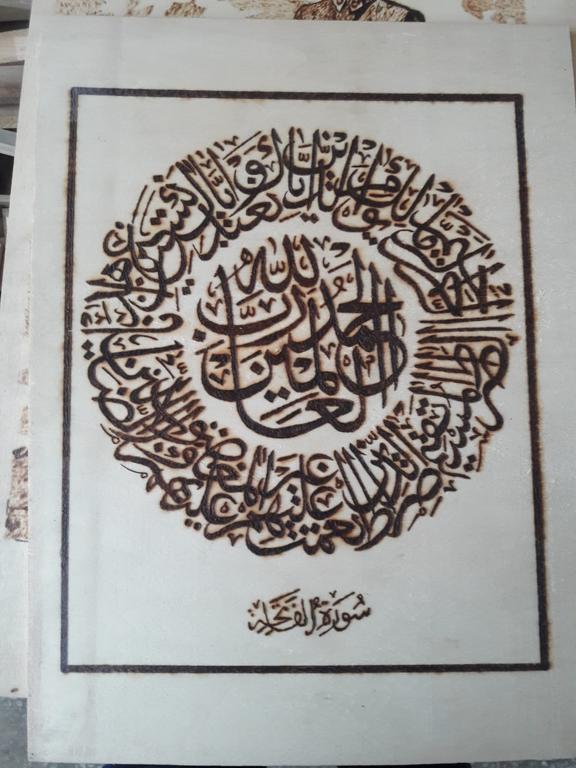 الحمد لله رب العالمين
الرحمن الرحيم ملك يوم الدين إياك نعبد وإياك نستعين اهدنا الصراط المستقيم صراط الذين أنعمت عليهم غير المغضوب عليهم ولا الضالين
سورة الفاتحة